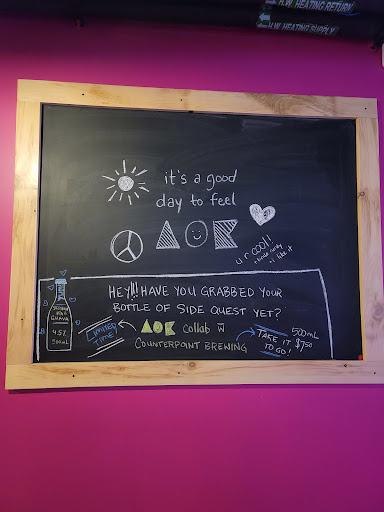 H.W. HEATING RETURN
H.W. HEATING SUPPLY
it's a good
day to feel
AOK
u r cool!
i like it
HEY!!! HAVE YOU GRABBED YOUR
BOTTLE OF SIDE QUEST YET?
4.5%
500mL
LIMITED
TIME
AOK collab w
COUNTERPOINT BREWING
TAKE IT
TO GO!
500mL
$7.50